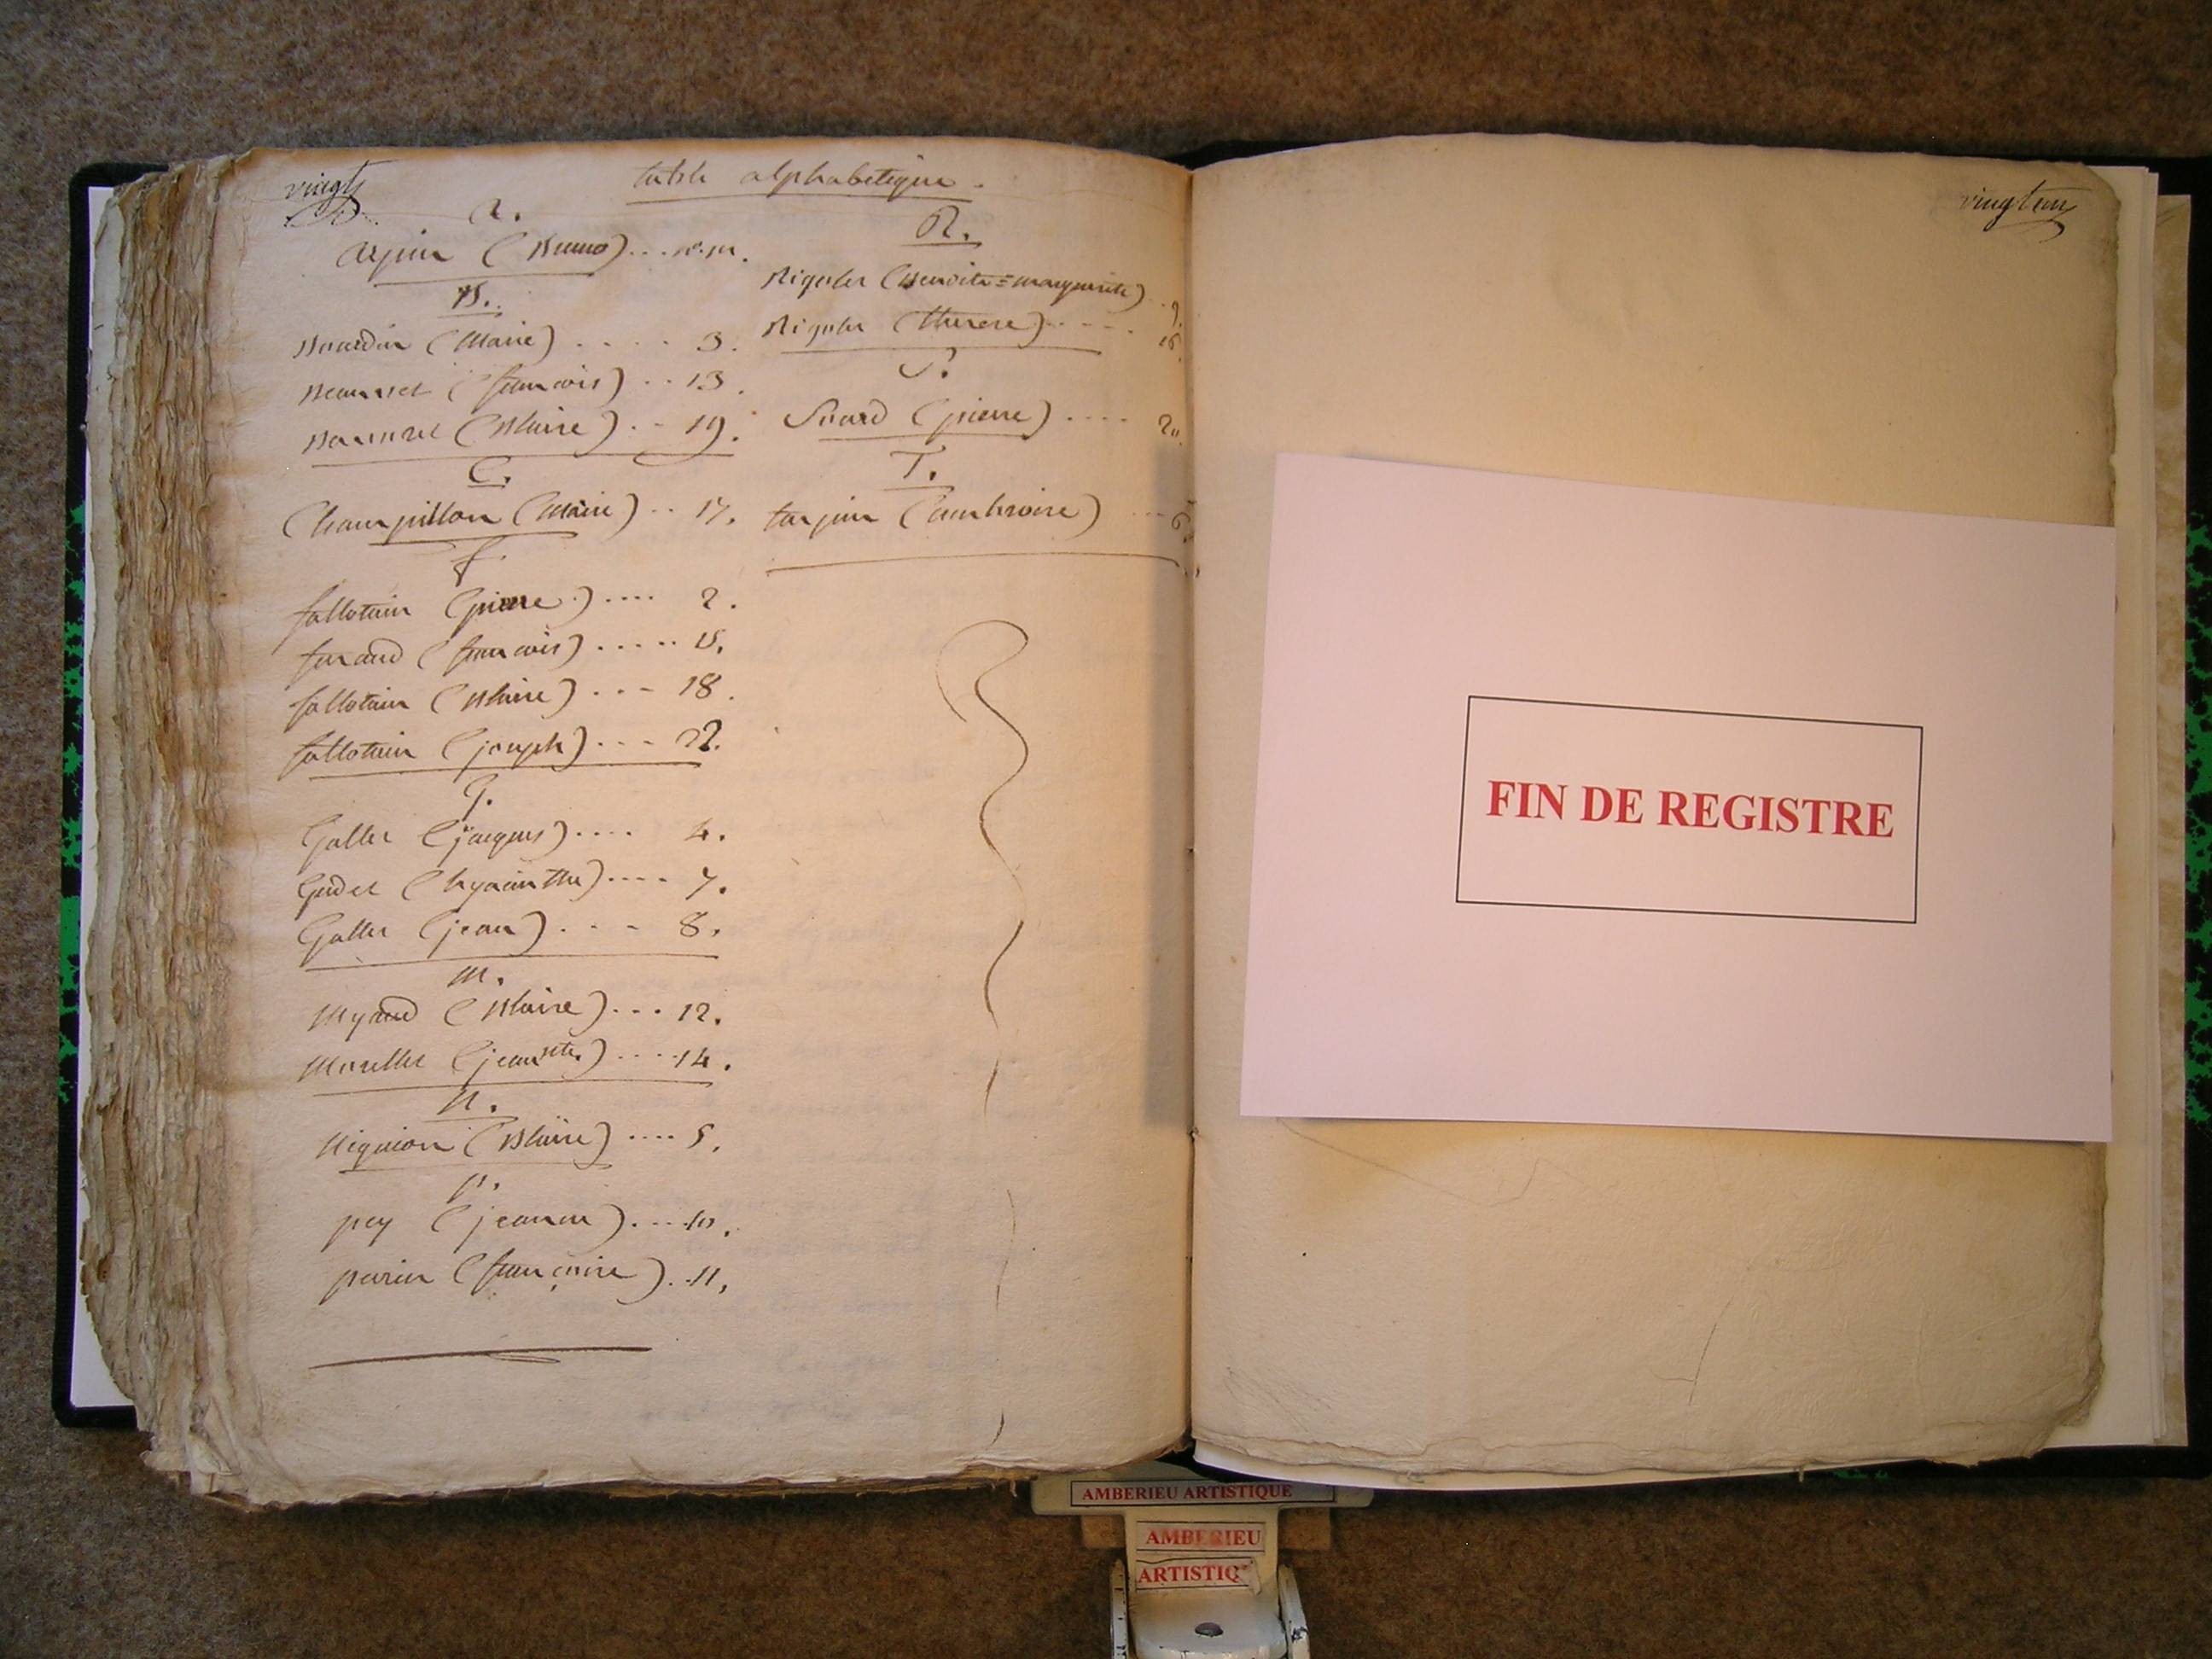 vingt
table alphabetique.
a.
arpin (Bruno)... n.o 1er.
B.
Bourdin (Marie) .... 3.
Beaunet (francois) .. 13.
Bonnuel (Blaise) .. 19.
C.
Champillon (Marie) .. 17.
f.
fallotain (pierre) .... 2.
furand (francois) ..... 15.
fallotain (Blaise) ... 18.
fallotain (joseph) ... 22.
G.
Gallet (jacques) .... 4.
Gudet (hyacinthe) .... 7.
Gallet (jean) ... 8.
M.
Myaud (Blaise) ... 12.
Morellet (jeannette) .... 14.
N.
Niguion (Blaise) .... 5.
p.
pey (jeanne) .... 10.
perrin (francoise) .. 11.
R.
Rigolet (Benoite=marguerite) .. 9.
Rigolet (therese) .... 16.
S.
Suard (pierre) .... 20
T.
tarpin (ambroise) ... 6.
vingt un
FIN DE REGISTRE
AMBERIEU ARTISTIQUE
AMBERIEU
ARTISTIQ